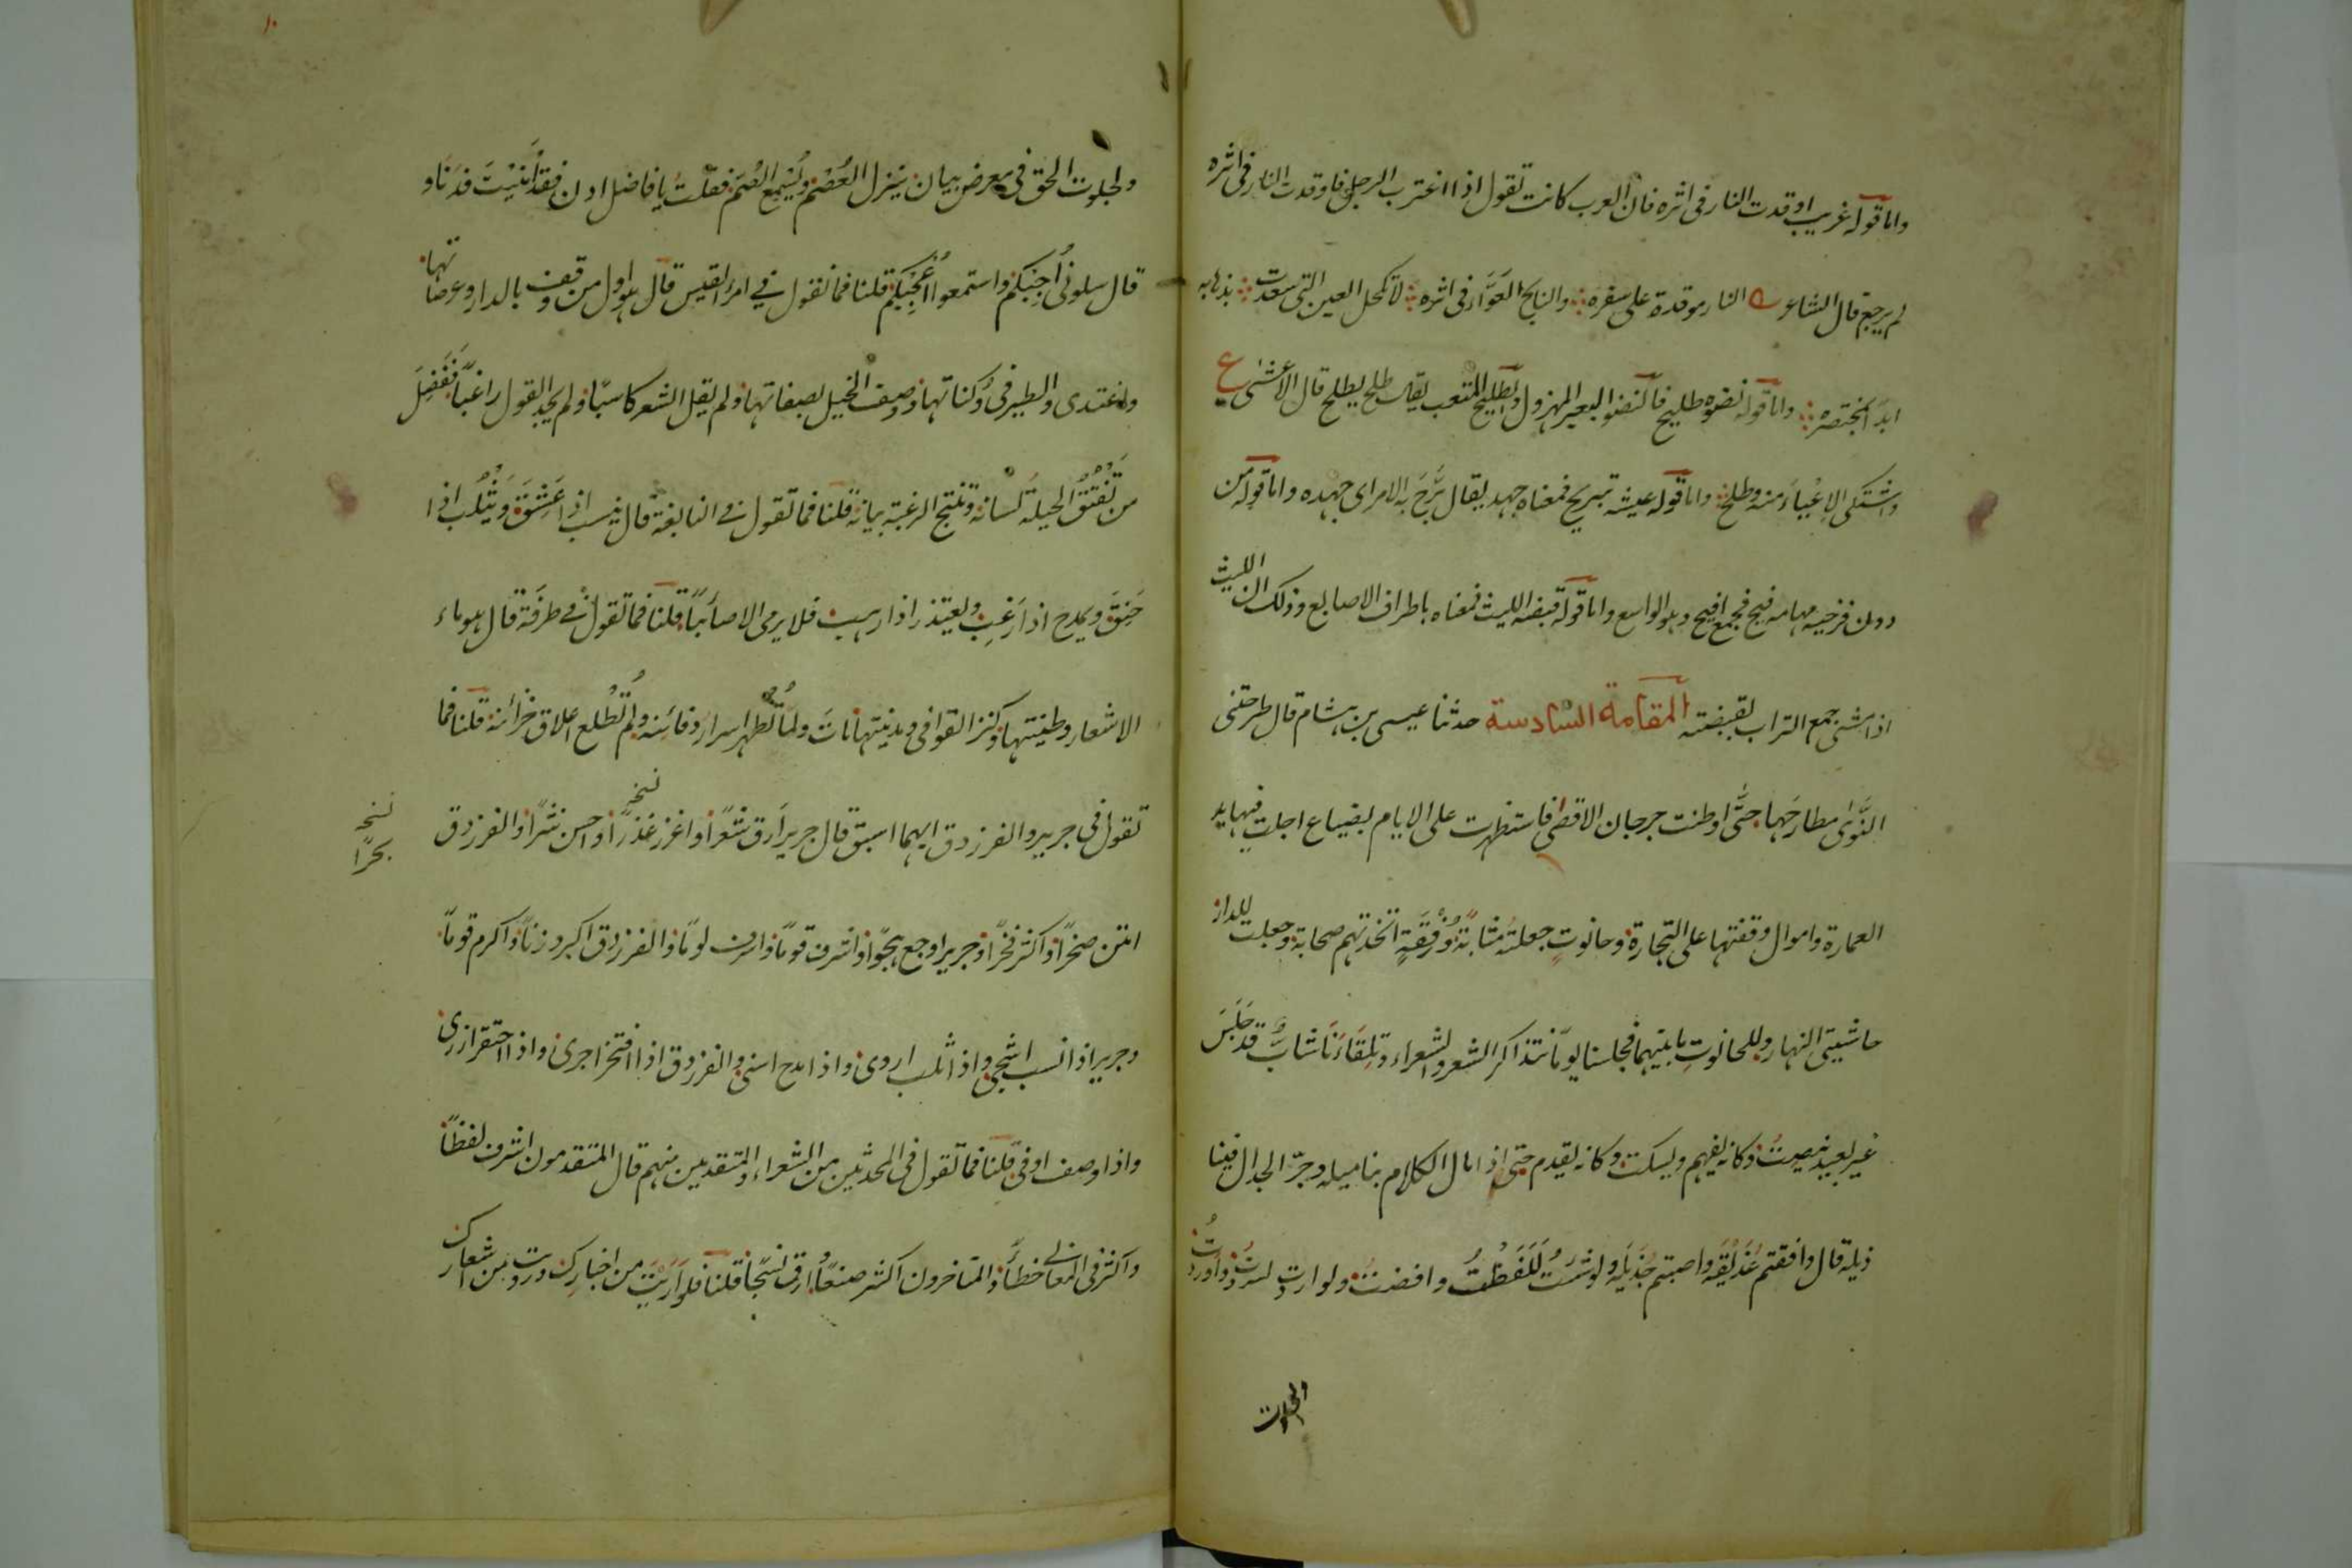 واما قوله غريب اوقدت النار في اثره فان العرب كانت تقول اذا اغترب الرجل فاوقدت النار في اثره
لم يرجع قال الشاعر النار موقدة على سفره والنابح العوّار في اثره لا تكحل العين التي سعدت بذهابه
ابدا واما قوله نضوه طليح فالنضو البعير المهزول والطليح المتعب يقال طلح يطلح قال الاعشى ع
واشتكى الاِعْيَاءَ منه وطلح واما قوله عيشه تبريح فمعناه جهد يقال بَرَّحَ به الامر اى جهده واما قوله من
دون فرخيه مهامه فيح فجمع افيح وهو الواسع واما قوله قبضه الليث فمعناه باطراف الاصابع وذلك ان الليث
اذا مشى جمع التراب بقبضته المقامة السّادسة حدثنا عيسى بن هشام قال طرحتنى
النَّوَى مطارحَها حتَّى اوطنت جرجان الاقصى فاستظهرت على الايام بضياع اجلت فيها يد
العمارة واموال وقفتها على التجارة وحانوتٍ جعلته مثابةً ورُفْقَةٍ اتخذتهم صحابة وجعلت للدار
حاشيتى النهار وللحانوتِ ما بينهما فجلسنا يومًا نتذاكر الشعر والشعراء وتِلْقَاءَنَا شابٌّ قد جَلَسَ
غير بعيد ينصِتُ وكانه يفهم ويسكت وكانه يقدم حتى اذا مال الكلام بنا ميله وجرّ الجدال فينا
ذيله قال وافقتم عُذَيْقَه واصبتم جُذَيْلَه ولو شئتُ لَلَفَظْتُ وافضتُ ولو اردت لسردتُ واوردتُ
ولجلوت الحق في معرض بيان ينزل العُصْمَ ويُسْمِعُ الصُّمَّ فقلتُ يا فاضل ادن فقد اَمْنَيْتَ فدنا و
قال سلونى اُجِبْكُمْ واستمعوا اُعْجِبْكُمْ قلنا فما تقول في امرء القيس قال هو اول من وقف بالدار وعرصاتها
واغتدى والطير في وُكناتها ووصف الخيل بصفاتها ولم يقل الشعر كاسبًا ولم يجد القول راغبًا ففَضَلَ
من تَفَتَّقَ الحيلة لسانه وتنتج الرغبة بيانه قلنا فما تقول في النابغة قال ينسب اذا عَشِقَ ويَثْلُبُ اذا
حَنِقَ ويمدح اذا رَغِبَ ويعتذر اذا رهب فلا يرمى الا صائبًا قلنا فما تقول في طرفَة قال هو ماء
الاشعار وطينتها وكنز القوافى ومدينتها ماتَ ولمّا تظهر اسرار دفائنه ولم تُطْلع اغلاق خزائنه قلنا فما
تقول في جرير والفرزدق ايهما اسبق قال جرير اَرق شعرًا واغزر غَدْرًا واحسن نثرًا والفرزدق
نسخه
نسخه
بحرًا
امتن صخرًا واكثر فخرًا وجرير اوجع هجوًا واشرف قومًا واشرف لومًا والفرزدق اكبر وزنًا واكرم قومًا
وجرير اذا نسب اشجى واذا ثلب اروى واذا مدح اسنى والفرزدق اذا افتخر اجرى واذا احتقر ازرى
واذا وصف اوفى قلنا فما تقول في المحدثين من الشعراء والمتقدمين منهم قال المتقدمون اشرف لفظًا
واكثر في المعانى خطأً والمتاخرون اكثر صنعًا وارق نسجًا قلنا فلو اَرَيْتَ من اخبارك ورويت من اشعارك